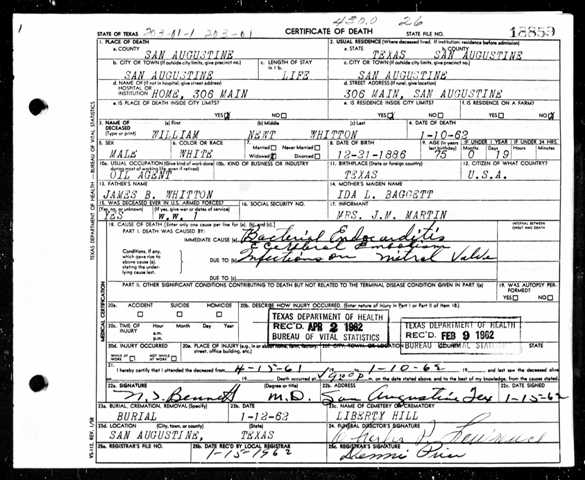 1
4300 26
STATE OF TEXAS 203-01-1 203-01 CERTIFICATE OF DEATH STATE FILE NO. 18859
1. PLACE OF DEATH 2. USUAL RESIDENCE (Where deceased lived. If institution: residence before admission)
a. COUNTY a. STATE b. COUNTY
SAN AUGUSTINE TEXAS SAN AUGUSTINE
b. CITY OR TOWN (If outside city limits, give precinct no.) c. LENGTH OF STAY c. CITY OR TOWN (If outside city limits, give precinct no.)
SAN AUGUSTINE LIFE SAN AUGUSTINE
d. NAME OF (If not in hospital, give street address) d. STREET ADDRESS (If rural, give location)
HOSPITAL OR
INSTITUTION HOME, 306 MAIN 306 MAIN, SAN AUGUSTINE
e. IS PLACE OF DEATH INSIDE CITY LIMITS? e. IS RESIDENCE INSIDE CITY LIMITS? f. IS RESIDENCE ON A FARM?
YES NO YES NO YES NO
3. NAME OF DECEASED (Type or print) (a) First (b) Middle (c) Last 4. DATE OF DEATH
WILLIAM NEWT WHITTON 1-10-62
5. SEX 6. COLOR OR RACE 7. Married Never Married 8. DATE OF BIRTH 9. AGE (In years last birthday) IF UNDER 1 YEAR IF UNDER 24 HRS.
MALE WHITE Widowed Divorced 12-21-1886 75 Months 0 Days 19 Hours Min.
10a. USUAL OCCUPATION (Give kind of work done during most of working life, even if retired) 10b. KIND OF BUSINESS OR INDUSTRY 11. BIRTHPLACE (State or foreign country) 12. CITIZEN OF WHAT COUNTRY?
OIL AGENT TEXAS U.S.A.
13. FATHER'S NAME 14. MOTHER'S MAIDEN NAME
JAMES B. WHITTON IDA L. BAGGETT
15. WAS DECEASED EVER IN U.S. ARMED FORCES? 16. SOCIAL SECURITY NO. 17. INFORMANT
(Yes, no, or unknown) (If yes, give war or dates of service)
YES W.W. MRS. J.M. MARTIN
18. CAUSE OF DEATH [Enter only one cause per line for (a), (b), and (c).] INTERVAL BETWEEN ONSET AND DEATH
PART I. DEATH WAS CAUSED BY:
IMMEDIATE CAUSE (a) Bacterial Endocarditis
Conditions, if any, which gave rise to above cause (a), stating the underlying cause last.
DUE TO (b) Cerebral Embolism
DUE TO (c) Infectious on Mitral Valve
PART II. OTHER SIGNIFICANT CONDITIONS CONTRIBUTING TO DEATH BUT NOT RELATED TO THE TERMINAL DISEASE CONDITION GIVEN IN PART I(a) 19. WAS AUTOPSY PERFORMED?
YES NO
20a. ACCIDENT SUICIDE HOMICIDE 20b. DESCRIBE HOW INJURY OCCURRED. (Enter nature of injury in Part I or Part II of item 18)
20c. TIME OF INJURY Hour Month Day Year
a.m.
p.m.
TEXAS DEPARTMENT OF HEALTH
REC'D APR 2 1962
BUREAU OF VITAL STATISTICS
TEXAS DEPARTMENT OF HEALTH
REC'D FEB 9 1962
BUREAU OF VITAL STATISTICS
20d. INJURY OCCURRED 20e. PLACE OF INJURY (e.g., in or about home, farm, factory, street, office building, etc.) 20f. CITY, TOWN, OR LOCATION
WHILE AT WORK NOT WHILE AT WORK
21. I hereby certify that I attended the deceased from 4-15-61 1-10-62 and last saw the deceased alive
Death occurred at m. on the date stated above; and to the best of my knowledge, from the causes stated.
22a. SIGNATURE (Degree or title) 22b. ADDRESS 22c. DATE SIGNED
Bennett M.D. San Augustine Tex 1-15-62
23a. BURIAL, CREMATION, REMOVAL (Specify) 23b. DATE 23c. NAME OF CEMETERY OR CREMATORY
BURIAL 1-12-62 LIBERTY HILL
23d. LOCATION (City, town, or county) (State) 24. FUNERAL DIRECTOR'S SIGNATURE
SAN AUGUSTINE, TEXAS
25a. REGISTRAR'S FILE NO. 25b. DATE REC'D BY LOCAL REGISTRAR 25c. REGISTRAR'S SIGNATURE
1-15-1962
TEXAS DEPARTMENT OF HEALTH — BUREAU OF VITAL STATISTICS
MEDICAL CERTIFICATION
VS-112, REV. 1/58